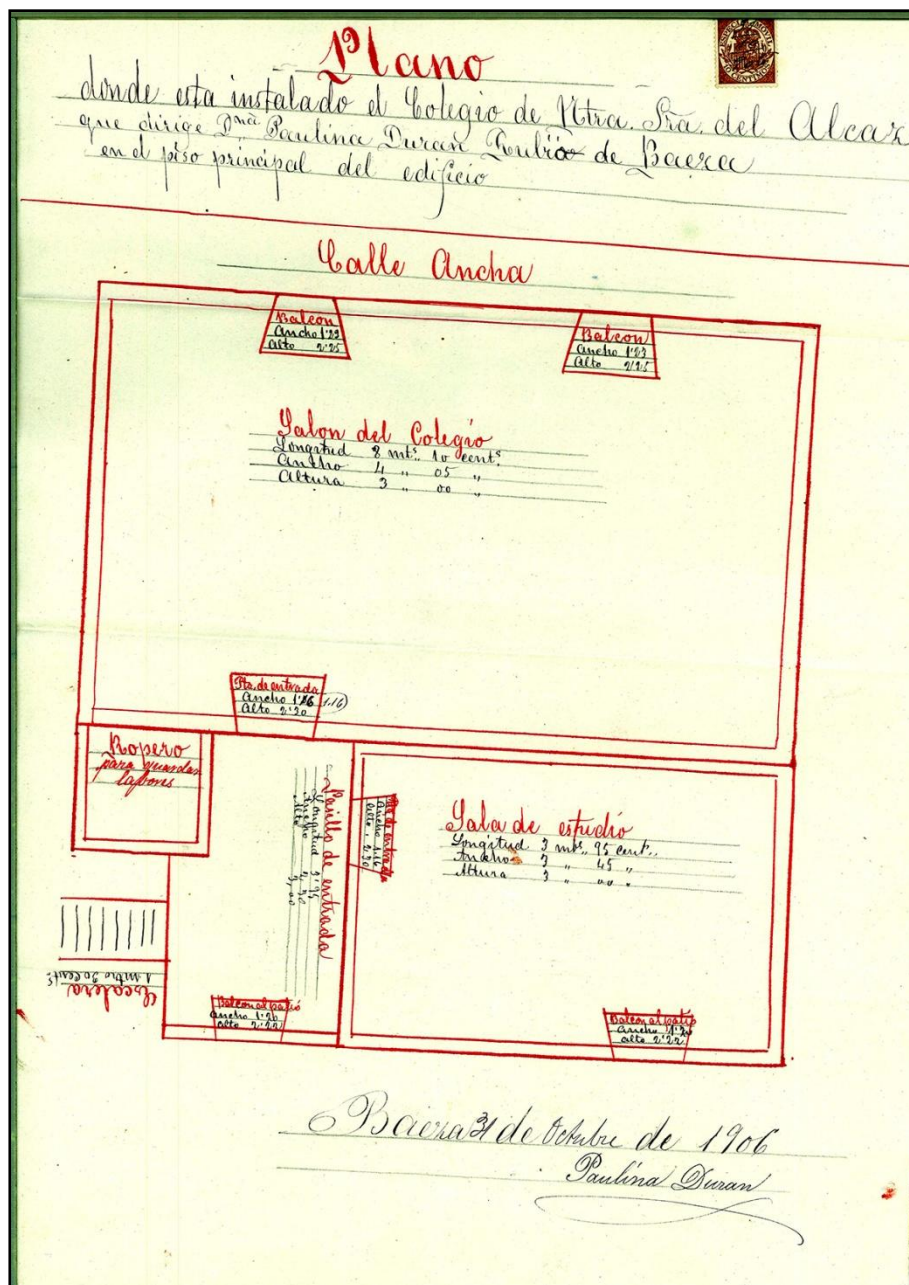 Plano
donde esta instalado el Colegio de Ntra. Sra. del Alcaz
que dirige Dña Paulina Duran Rubio de Baeza
en el piso principal del edificio
Calle Ancha
Balcon
Ancho 1'23
Alto 2'25
Balcon
Ancho 1'23
Alto 2'25
Salon del Colegio
Longitud 8 mts. 10 cents.
Ancho 4 " 05 "
Altura 3 " 00 "
Pta. de entrada
Ancho 1'16 (1.16)
Alto 2'20
Ropero
para guardar
labores
Pasillo de entrada
Longitud
Ancho
Alto 3,00
Pta de entrada
Ancho 1.16
Alto, 2.20
Sala de estudio
Longitud 3 mts. 95 cent..
Ancho 3 " 45 "
Altura 3 " 00 "
Escalera
1 metro 30 cents
Balcon al patio
Ancho 1'20
Alto 2'22
Balcon al patio
Ancho 1'20
Alto 2'22
Baeza 31 de Octubre de 1906
Paulina Duran